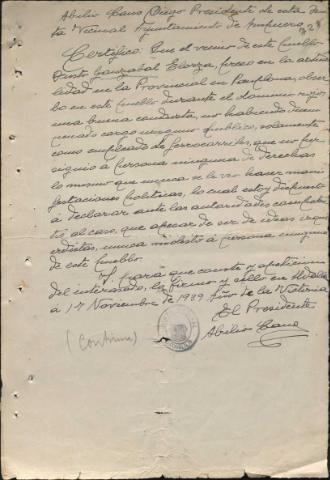 Abilio Cano Diego Presidente de esta Jun-
ta Vecinal Ayuntamiento de Ampuero.
Certifico: Que el vecino de este Pueblo
Justo Elorza, preso en la actua-
lidad en la Provincial en Pamplona, obser-
bo en este Pueblo durante el dominio rojo,
una buena conducta, no habiendo desem-
peñado cargo ninguno publico, solamente
como empleado de ferrocarriles, que no per-
siguio a persona ninguna de derechas
lo mismo que nunca se le vio hacer mani
festaciones politicas, lo cual estoy dispuesto
á declarar ante las autoridades competen-
tes al caso, que apesar de ser de ideas izqui
erdistas, nunca molestó a persona ninguna
de este Pueblo.
Y para que conste y a peticion
del interesado, lo firmo y sello en
a 17 Noviembre de 1939. Año de la Victoria
El Presidente
Abilio Cano
(Continua)